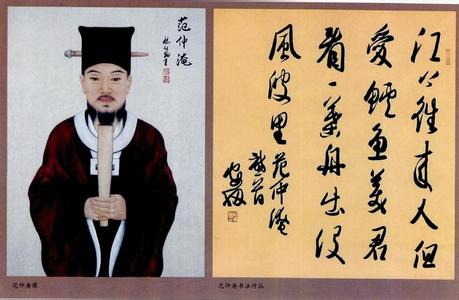 范仲淹
江上往来人但
愛鱸魚美君
看一葉舟出没
風波里
范仲淹
范仲淹像
范仲淹书法作品